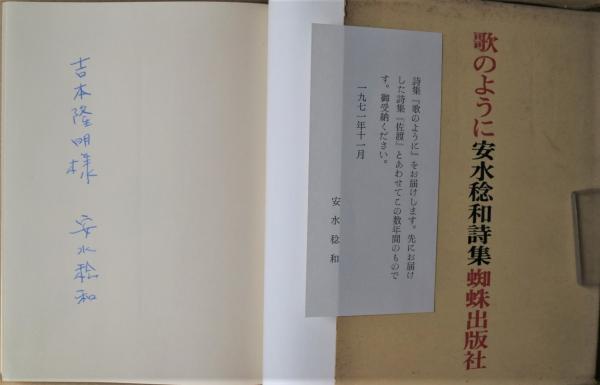 歌のように安水稔和詩集蜘蛛出版社
詩集『歌のように』をお届けします。先にお届け
した詩集『佐渡』とあわせてこの数年間のもので
す。御受納ください。
一九七一年十一月
安水稔和
吉本隆明様
安水稔和